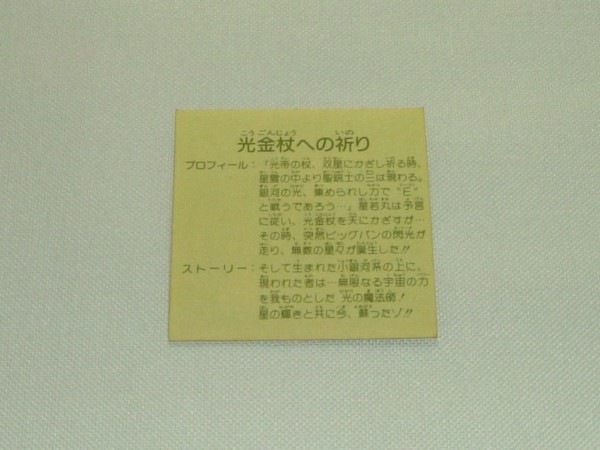 光金杖への祈り
プロフィール：「光帝の杖、双星にかざし祈る時、
星雲の中より聖銃士の三は現わる。
銀河の光、集められし力で“E”
と戦うであろう…」星若丸は予言
に従い、光金杖を天にかざすが…
その時、突然ビッグバンの閃光が
走り、無数の星々が誕生した!!
ストーリー：そして生まれた小銀河系の上に、
現われた者は…無限なる宇宙の力
を我ものとした 光の魔法師！
星の輝きと共に今、蘇ったゾ!!